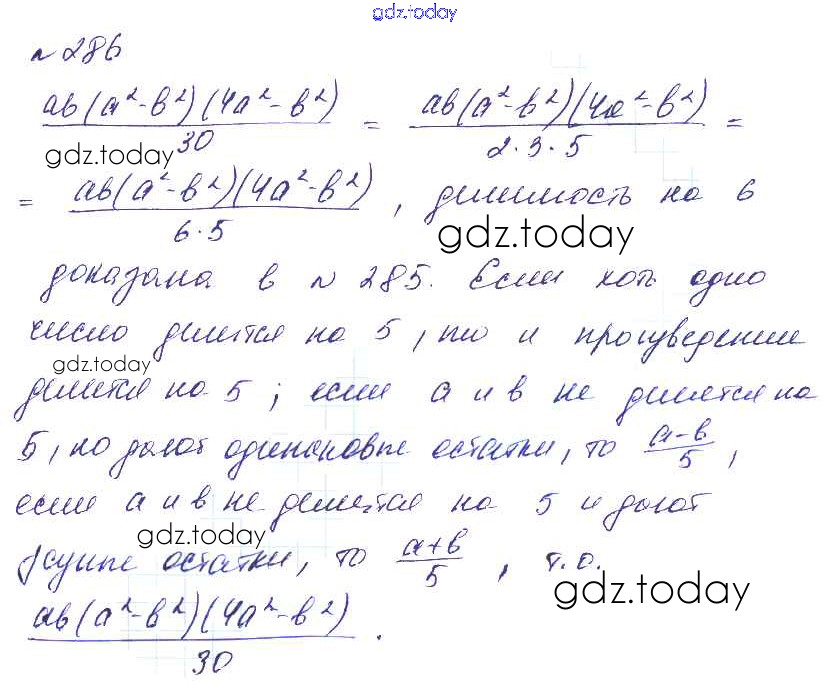 gdz.today
№ 286
ab(a²-b²)(4a²-b²)/30 = ab(a²-b²)(4a²-b²)/2·3·5 =
gdz.today
= ab(a²-b²)(4a²-b²)/6·5, делимость на 6
gdz.today
доказана в № 285. Если хоть одно
число делится на 5, то и произведение
gdz.today
делится на 5; если a и b не делятся на
5, но дают одинаковые остатки, то a-b/5,
если a и b не делятся на 5 и дают
gdz.today
другие остатки, то a+b/5, т.о.
gdz.today
ab(a²-b²)(4a²-b²)/30.